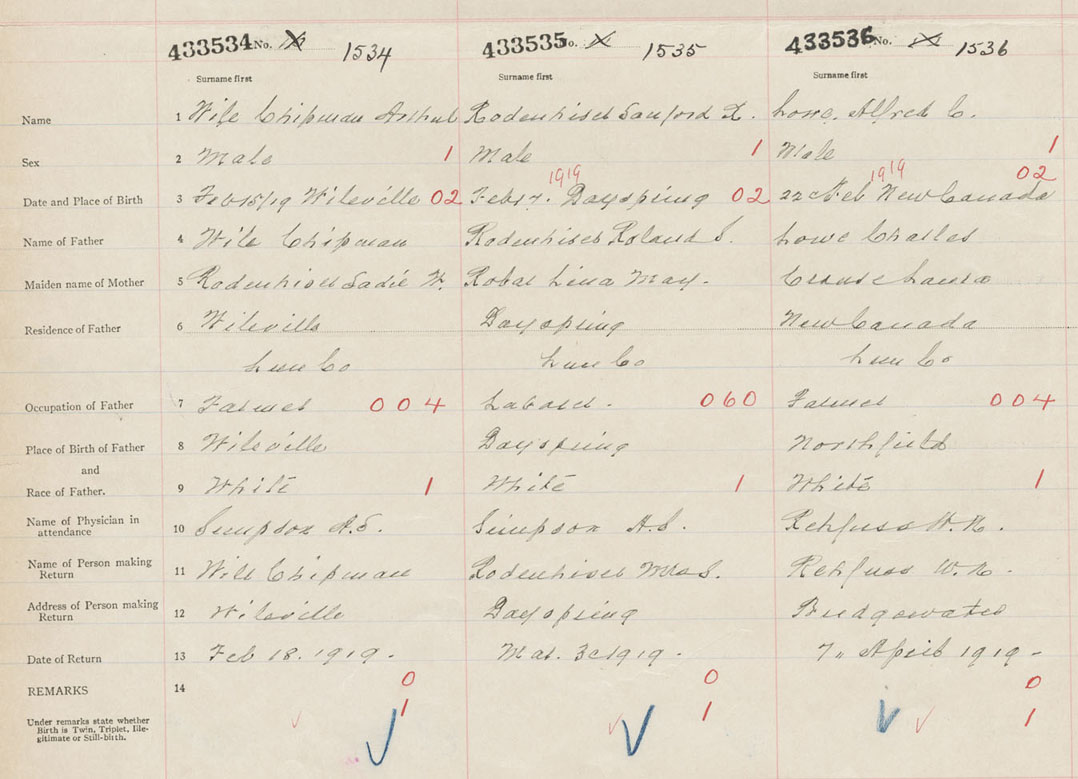 433534 No. 1534 433535 No. 1535 433536 No. 1536
Surname first Surname first Surname first
Name 1 Wile Chipman Arthur Rodenhiser Sanford L. Lowe, Alfred C.
Sex 2 Male 1 Male 1 Male 1
1919 1919 02
Date and Place of Birth 3 Feb 15/19 Wileville 02 Feb 17. Dayspring 02 22nd Feb New Canada
Name of Father 4 Wile Chipman Rodenhiser Roland S. Lowe Charles
Maiden name of Mother 5 Rodenhiser Sadie W. Robar Lina May. Crouse Laura
Residence of Father 6 Wileville Dayspring New Canada
Lun Co Lun Co Lun Co
Occupation of Father 7 Farmer 004 Laborer. 060 Farmer 004
Place of Birth of Father 8 Wileville Dayspring Northfield
and
Race of Father. 9 White 1 White 1 White 1
Name of Physician in
attendance 10 Simpson A.S. Simpson A.S. Rehfuss W.N.
Name of Person making
Return 11 Wile Chipman Rodenhiser Mrs S. Rehfuss W.N.
Address of Person making
Return 12 Wileville Dayspring Bridgewater
Date of Return 13 Feb 18. 1919. Mar. 3 1919. 7" April 1919
REMARKS 14 0 0 0
1 1 1
Under remarks state whether
Birth is Twin, Triplet, Ille-
gitimate or Still-birth.